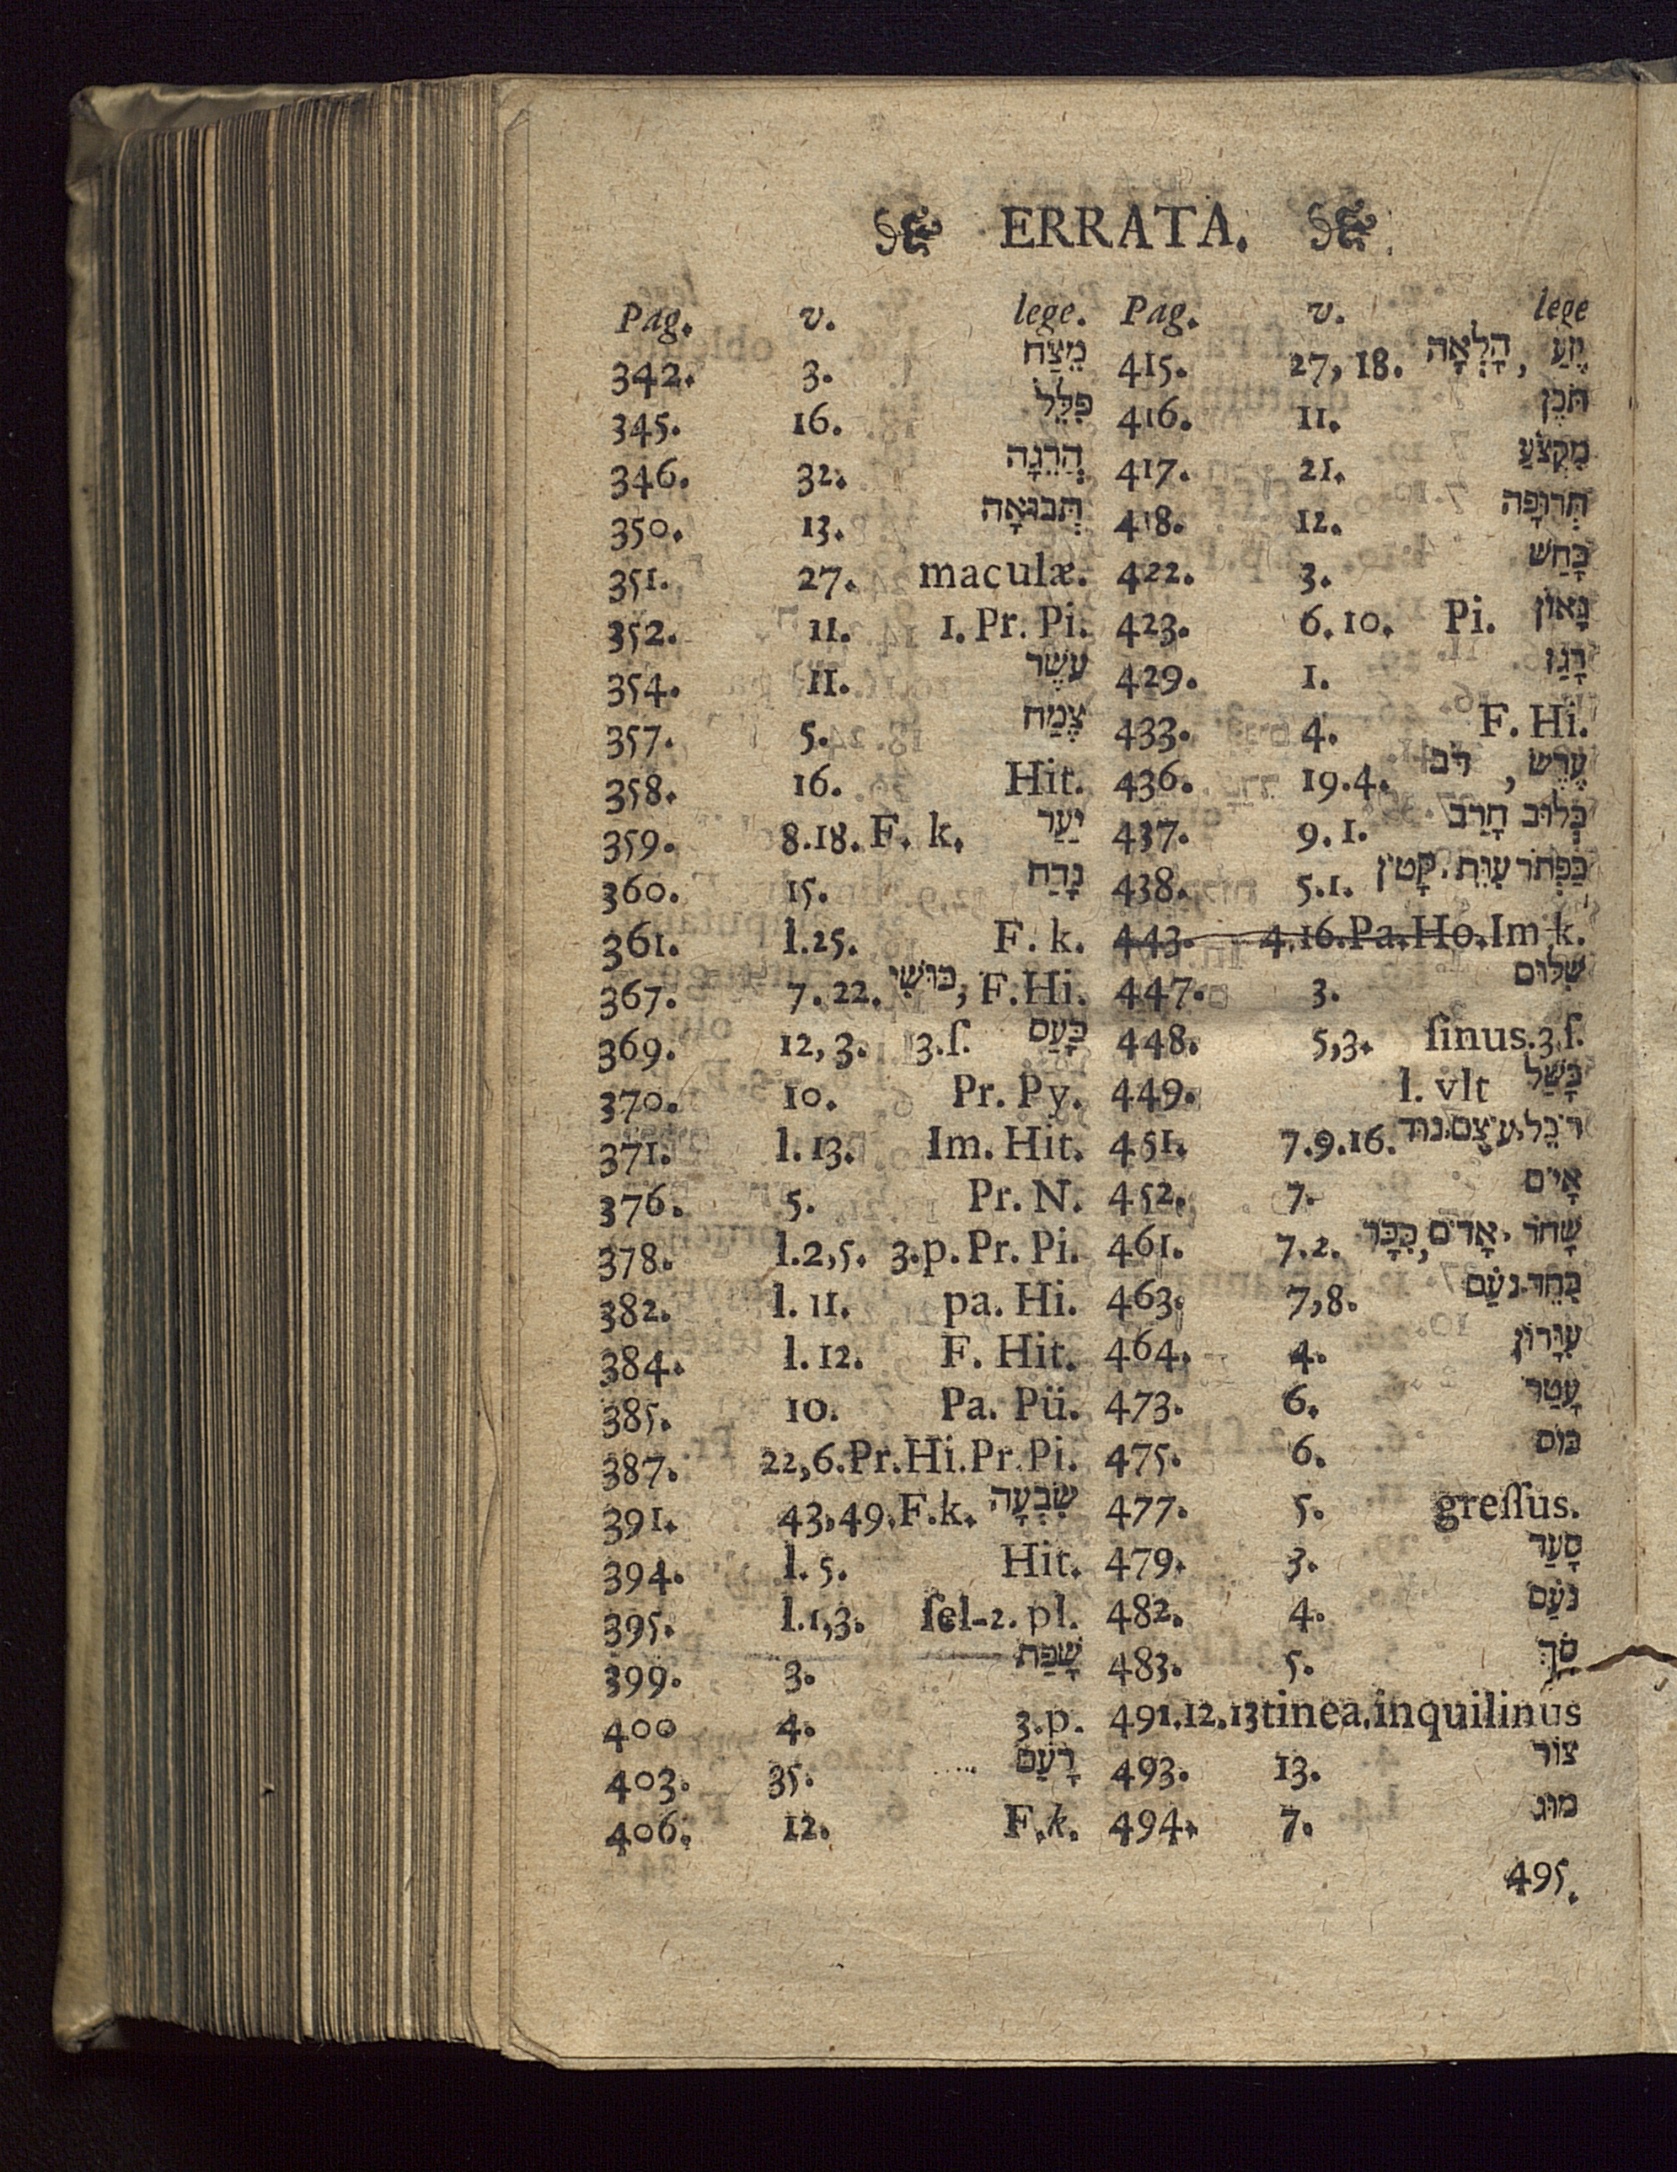 ERRATA.
Pag. v. lege.
342. 3. מֵצַח
345. 16. פִּלֵּל
346. 32. הֲרֵגָה
350. 13. תְּבוּאָה
351. 27. maculæ.
352. 11. 1. Pr. Pi.
354. 11. עֹשֶׁר
357. 5. צֶמַח
358. 16. Hit.
359. 8.18. F. k. יַעַר
360. 15. נָדַח
361. l.25. F. k.
367. 7. 22. כּוּשִׁי, F.Hi.
369. 12, 3. 3.ſ. כָּעַס
370. 10. Pr. Py.
371. l. 13. Im. Hit.
376. 5. Pr. N.
378. l.2,5. 3.p. Pr. Pi.
382. l. 11. pa. Hi.
384. l. 12. F. Hit.
385. 10. Pa. Pü.
387. 22,6.Pr.Hi.Pr.Pi.
391. 43,49.F.k. שִׁבְעָה
394. l. 5. Hit.
395. l.1,3. ſel-2. pl.
399. 3. שָׁפַת
400 4. 3.p.
403. 35. רָעַם
406. 12. F.k.
Pag. v. lege
415. 27, 18. הָלְאָה,
416. 11. תֹּכֶן
417. 21. מִקְצֹעַ
418. 12. תְּרוּפָה
422. 3. כָּחַשׁ
423. 6.10. Pi. גָּאוֹן
429. 1. רָגַז
433. 4. F. Hi.
436. 19.4. עֶרֶשׂ, רֹב
437. 9. 1. כְּלוּב חָרַב
438. 5.1. כַּפְתֹּר עִוֵּת. קָטֹין
443. 4.16.Pa.Ho.Im k.
447. 3. שִׁלּוּם
448. 5,3. ſinus.3.ſ.
449. l. vlt כָּשַׁל
451. 7.9.16.
452. 7. אָיֹם
461. 7.2. שָׁחֹר. אָדֹים, כִּכָּר
463. 7,8.
464. 4. עִוָּרוֹן
473. 6. עָטַר
475. 6. כּוֹס
477. 5. greſſus.
479. 3. סָעַר
482. 4. נֹעַם
483. 5. סֹךְ
491.12.13tinea.inquilinus
493. 13. צוֹר
494. 7. מוּג
495.